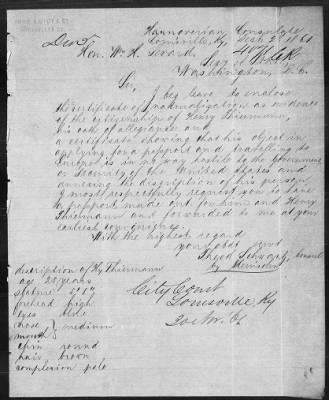 Hannoverian Consulate
Louisville, Ky, Sept 2 1861
Hon. Wm H. Seward,
Secy of State
Washington, D. C.
Sir,
I beg leave to enclose
the certificate of naturalization as evidence
of the citizenship of Henry Thiermann,
his oath of allegiance and
a certificate showing that his object in
applying for a passport and travelling to
Europe is in no way hostile to the Government
or security of the United States and
annexing the description of his person
I most respectfully request you to have
a passport made out for him and Henry
Thiermann and forwarded to me at your
earliest convenience.
With the highest regard
your obdt servt
Theod Schwartz, Consul
description of Hy Thiermann
age 25 years
stature 5'
forehead high
eyes blue
nose } medium
mouth
chin round
hair brown
complexion pale
City Court
Louisville, Ky